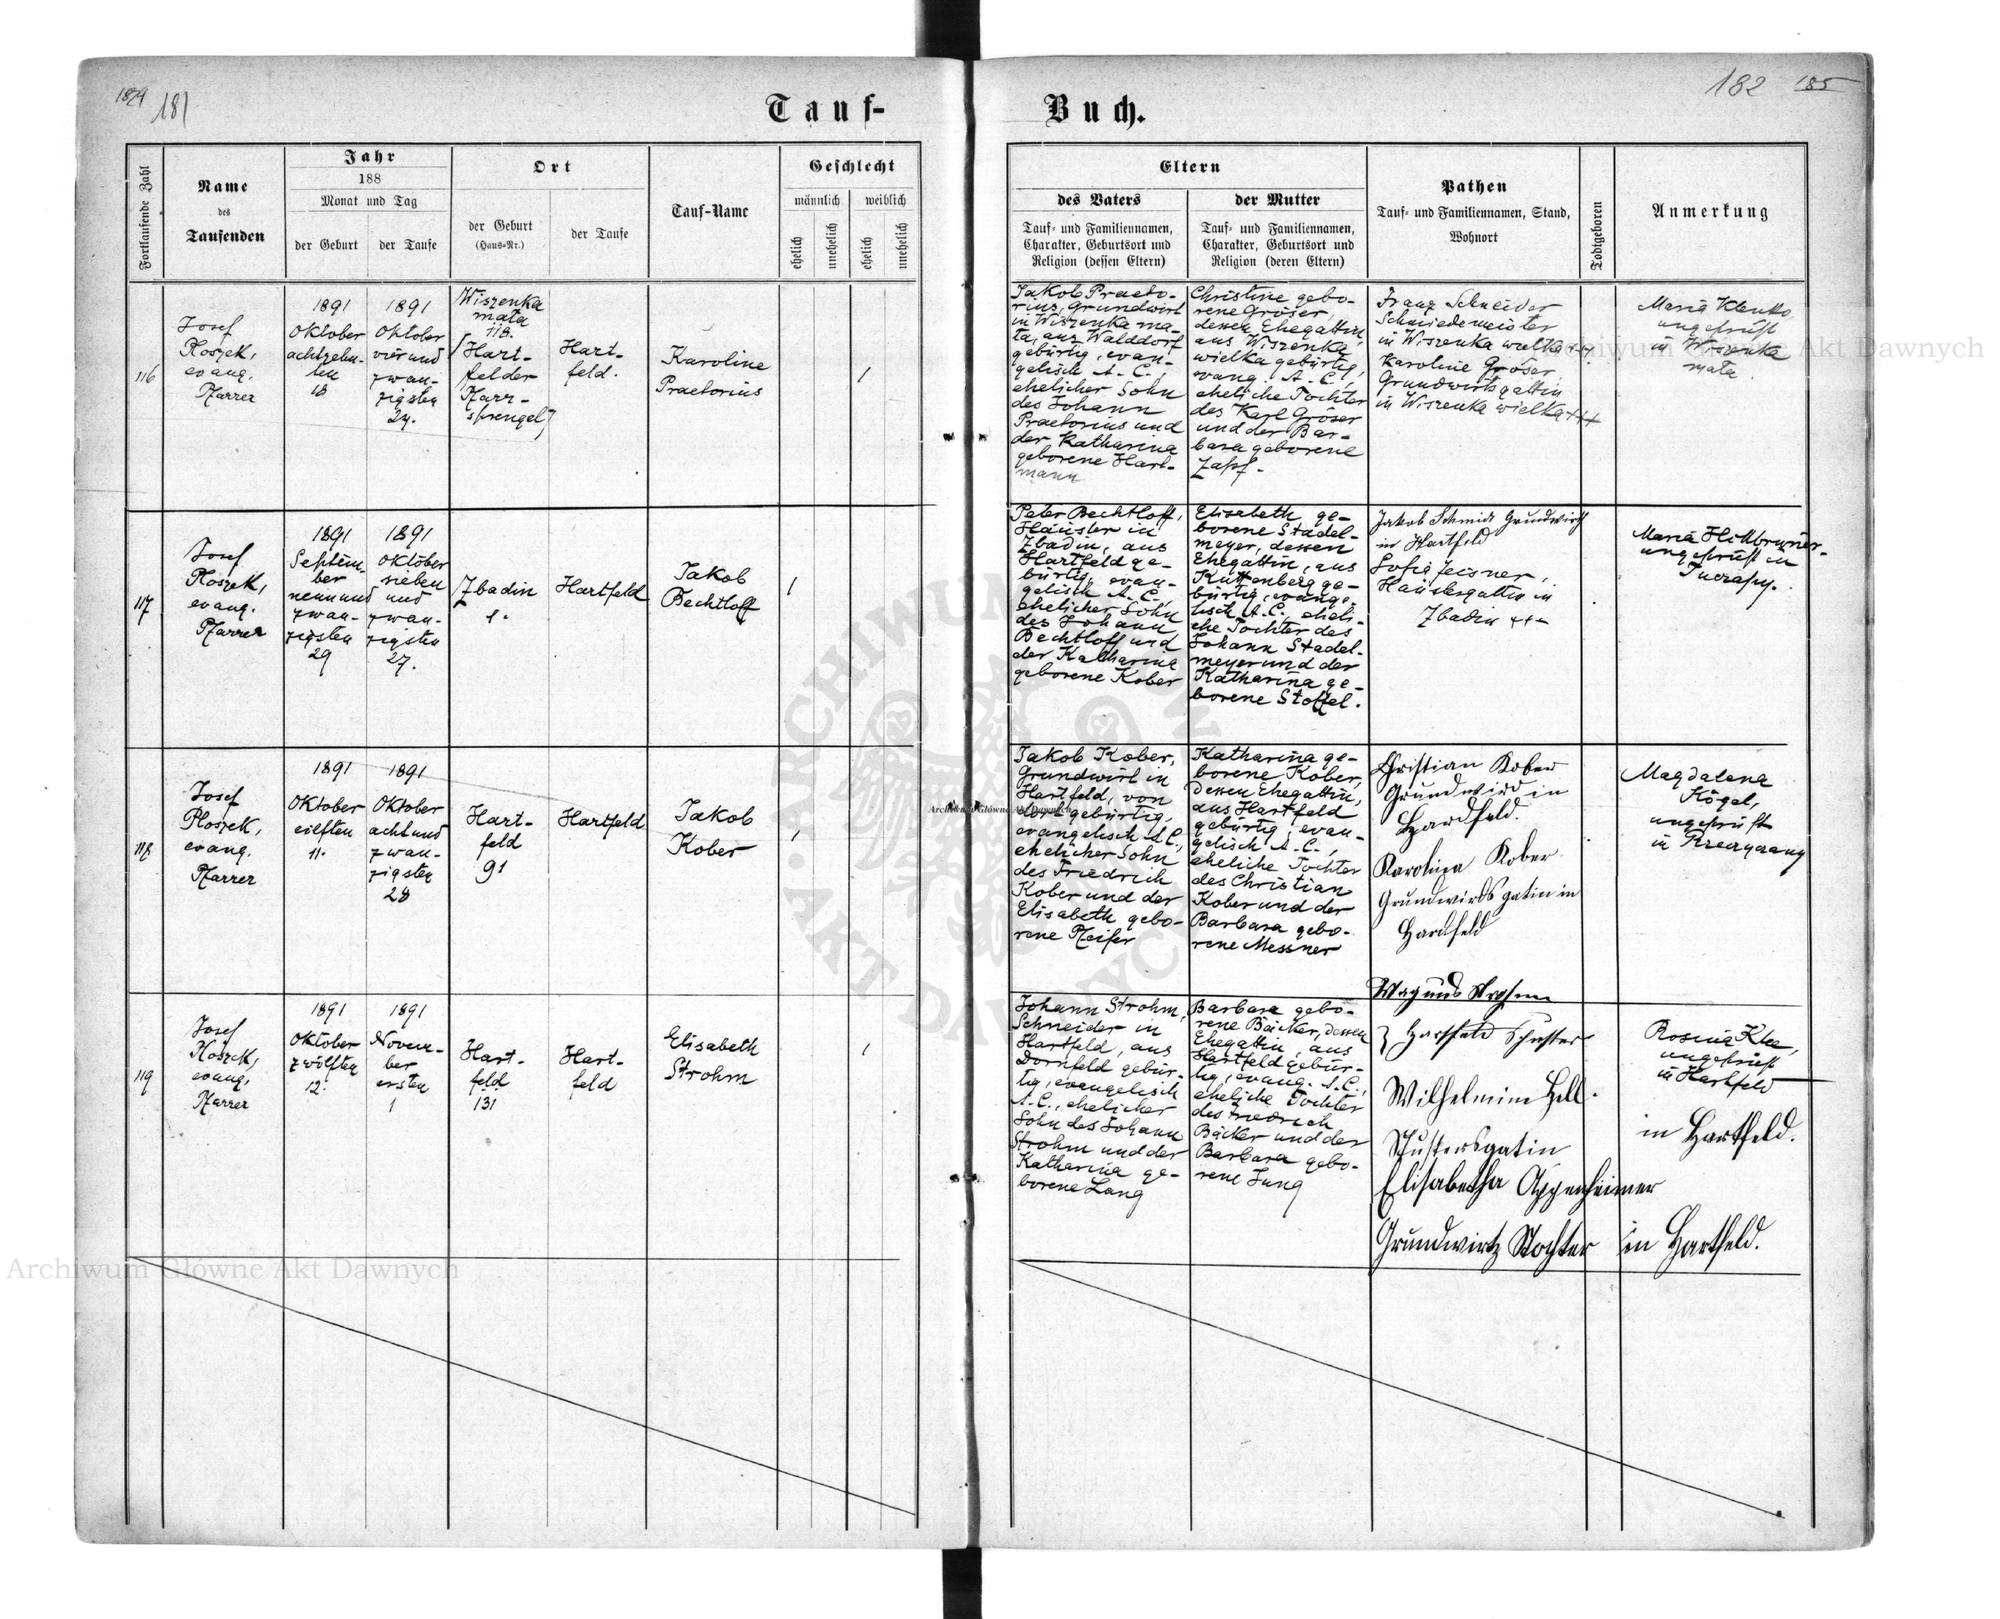 181
182
185
Tauf-
Buch.
Fortlaufende Zahl
Name
des
Taufenden
Jahr
188
Monat und Tag
der Geburt
der Taufe
Ort
der Geburt
(Haus-Nr.)
der Taufe
Tauf-Name
Geschlecht
männlich
weiblich
ehelich
unehelich
ehelich
unehelich
Eltern
des Vaters
Tauf- und Familiennamen,
Charakter, Geburtsort und
Religion (dessen Eltern)
der Mutter
Tauf- und Familiennamen,
Charakter, Geburtsort und
Religion (deren Eltern)
Pathen
Tauf- und Familiennamen, Stand,
Wohnort
Todtgeboren
Anmerkung
116
Josef
Ploszek,
evang.
Pfarrer
1891
Oktober
achtzehn-
ten
18
1891
Oktober
vier und
zwan-
zigsten
24.
Wiszenka
mała
118.
(Hart-
felder
Pfarr-
sprengel)
Hart-
feld.
Karoline
Praetorius
1
Jakob Praeto-
rius, Grundwirt
in Wiszenka ma-
ła, aus Walddorf
gebürtig, evan-
gelisch A. C.,
ehelicher Sohn
des Johann
Praetorius und
der Katharina
geborene Hart-
mann
Christine gebo-
rene Gröser,
dessen Ehegattin,
aus Wiszenka
wielka gebürtig,
evang. A. C.,
eheliche Tochter
des Karl Gröser
und der Bar-
bara geborene
Zapf.
Franz Schneider
Schmiedemeister
in Wiszenka wielka +++
Karoline Gröser,
Grundwirtsgattin
in Wiszenka wielka +++
Maria
ungeprüft
in Wiszenka
mała
117
Josef
Ploszek,
evang.
Pfarrer
1891
Septem-
ber
neunund
zwan-
zigsten
29
1891
Oktober
sieben
und
zwan-
zigsten
27.
Zbadin
1.
Hartfeld
Jakob
Bechtloff
1
Peter Bechtloff,
Häusler in
Zbadin, aus
Hartfeld ge-
bürtig, evan-
gelisch A. C.,
ehelicher Sohn
des Johann
Bechtloff und
der Katharina
geborene Kober
Elisabeth ge-
borene Stadel-
meyer, dessen
Ehegattin, aus
Kuttenberg ge-
bürtig, evange-
lisch A. C., eheli-
che Tochter des
Johann Stadel-
meyer und der
Katharina ge-
borene Stoffel.
Jakob Schmidt Grundwirth
in Hartfeld
Sofia Zeisner,
Häuslergattin in
Zbadin +++
Maria
ungeprüft in
118
Josef
Ploszek,
evang.
Pfarrer
1891
Oktober
eilften
11.
1891
Oktober
acht und
zwan-
zigsten
28
Hart-
feld
91
Hartfeld
Jakob
Kober
1
Jakob Kober,
Grundwirt in
Hartfeld, von
dort gebürtig,
evangelisch A.C.,
ehelicher Sohn
des Friedrich
Kober und der
Elisabeth gebo-
rene Pfeifer
Katharina ge-
borene Kober,
dessen Ehegattin,
aus Hartfeld
gebürtig, evan-
gelisch A. C.,
eheliche Tochter
des Christian
Kober und der
Barbara gebo-
rene Messner
Christian Kober
Grundwird in
Hardfeld.
Karolina Kober
Grundwirds gatin in
Hardfeld
Magdalena
Kögel,
ungeprüft
in
119
Josef
Ploszek,
evang.
Pfarrer
1891
Oktober
zwölften
12.
1891
Novem-
ber
ersten
1
Hart-
feld
131
Hart-
feld
Elisabeth
Strohm
1
Johann Strohm,
Schneider in
Hartfeld, aus
Dornfeld gebür-
tig, evangelisch
A. C., ehelicher
Sohn des Johann
Strohm und der
Katharina ge-
borene Lang
Barbara gebo-
rene Bäcker, dessen
Ehegattin, aus
Hartfeld gebür-
tig, evang. A. C.,
eheliche Tochter
des Friedrich
Bäcker und der
Barbara gebo-
rene Jung
Hartfeld Schuster
Wilhelmine Hell.
Schustersgatin in Hartfeld.
Elisabetha Oppenheimer
Grundwirtz Tochter in Hartfeld.
Rosina Klee,
ungeprüft
in Hartfeld
Archiwum Główne Akt Dawnych